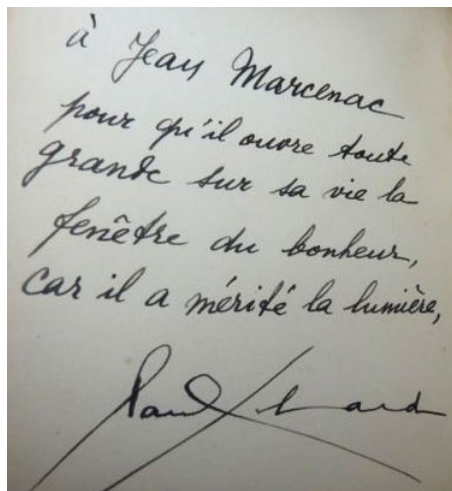 à Jean Marcenac
pour qu'il ouvre toute
grande sur sa vie la
fenêtre du bonheur,
car il a mérité la lumière,
Paul Eluard